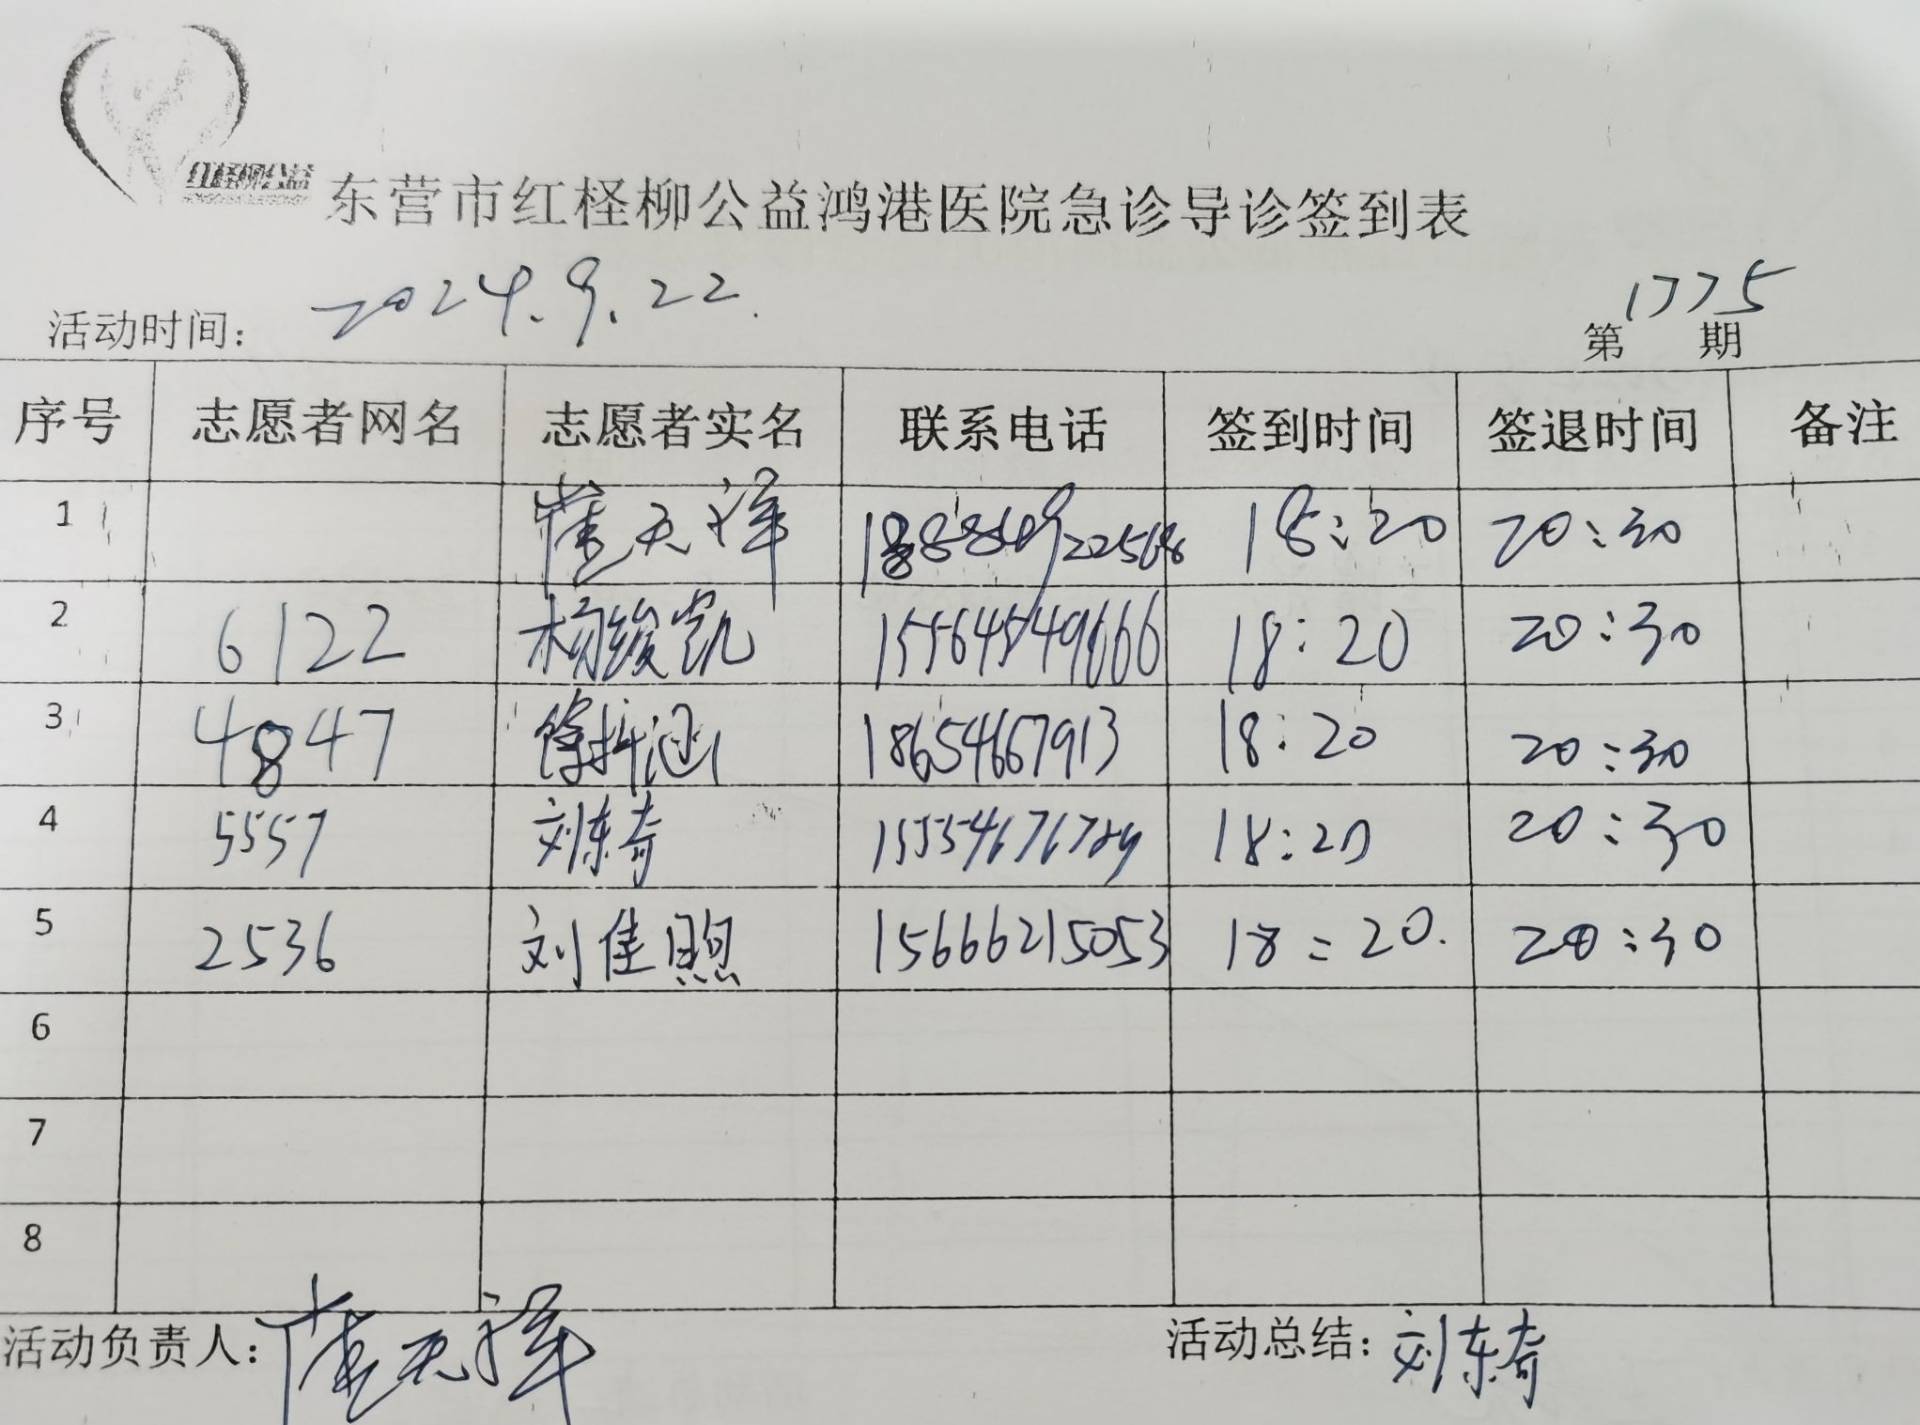 红柽柳公益
东营市红柽柳公益鸿港医院急诊导诊签到表
活动时间: 2024.9.22.
第1775期
序号 志愿者网名 志愿者实名 联系电话 签到时间 签退时间 备注
1 崔天洋 18:20 20:30
2 6122 杨骏凯 15564549666 18:20 20:30
3 4847 18654667913 18:20 20:30
4 5557 刘东奇 15554676789 18:20 20:30
5 2536 刘佳煦 15666215053 18:20. 20:30
6
7
8
活动负责人: 崔天洋
活动总结: 刘东奇